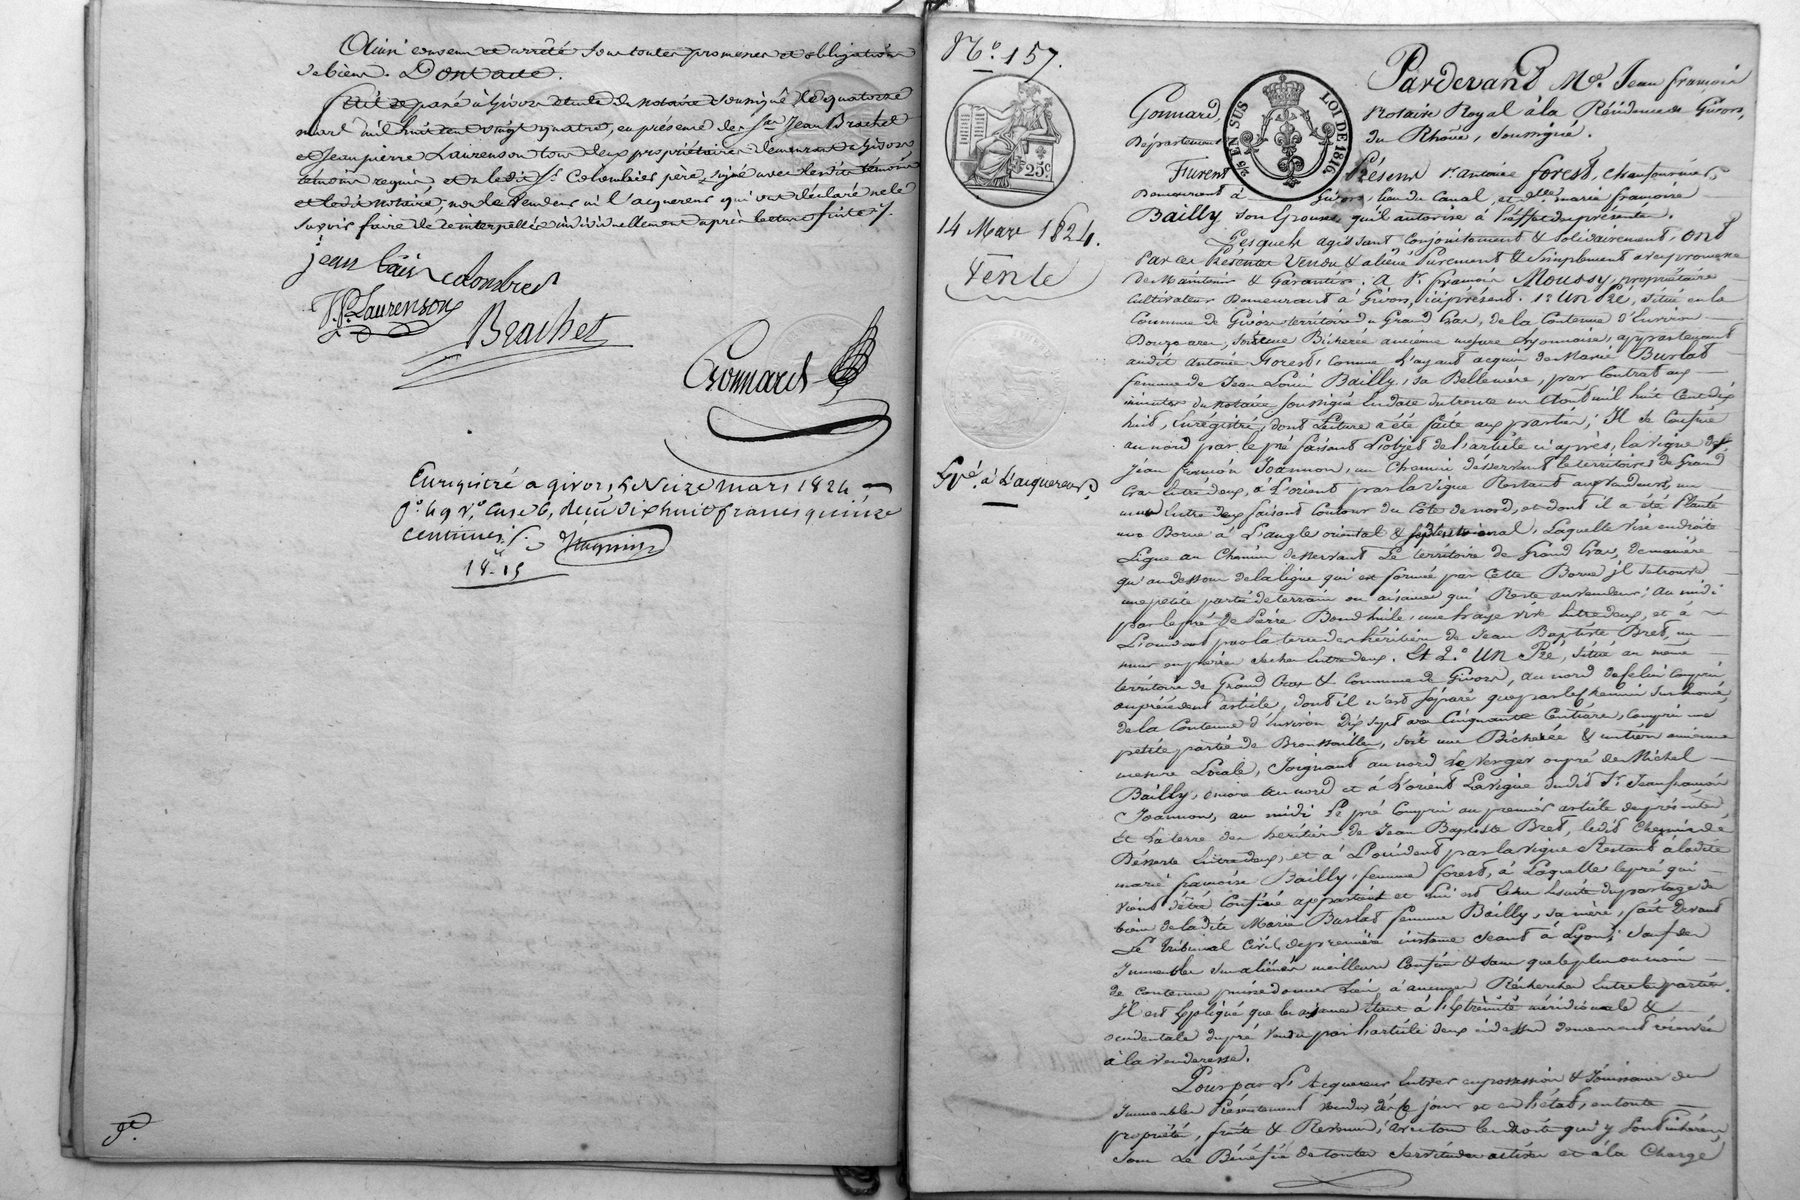 Ainsi convenu et arrêté sous toutes promesses et obligations
de biens. Dont acte.
Fait et passé à Givors étude du notaire soussigné le quatorze
mars mil huit cent vingt quatre, en présence des srs Jean Brachet
et Jean pierre Laurenson tous deux propriétaires demeurant à Givors
témoins requis, et a ledit Sr. Colombier père, signé avec lesdits témoins
et ledit notaire, non le vendeur ni l'acquereur qui ont déclaré ne le
savoir faire de ce interpellés individuellement après lecture faite
jean
J. Pre Laurenson
Brachet
Gonnard
Enregistré a givors, le Seize mars 1824
fo. 49 vo. case 6, reçu dix huit francs quinze
centimes
18.15
No. 157.
14 Mars 1824.
Vente
Gve. à l'acquereur
25 EN SUS
LOI DE 1816
25c
Pardevant Me. Jean françois
Gonnard, Notaire Royal à la Résidence de Givors,
Département du Rhône, soussigné.
Furent Présens sr. antoine forest, chaufournier,
Demeurant à Givors, lieu du Canal, et dlle. marie françoise
Bailly son Epouse qu'il autorise à l'effet du présente.
Lesquels agissant Conjointement & solidairement, ont
Par ces Présentes Vendu & aliéné Purement & simplement avec promesse
de Maintenir & Garantir. A sr. françois Moussy, propriétaire
Cultivateur Demeurant à Givors, ici présent. 1o. Un Pré, situé en la
Commune de Givors territoire du Grand Cras, de la Contenue d'Environ
Douze ares, soit une Bicherée ancienne mesure Lyonnaise, appartenant
audit antoine Forest, comme l'ayant acquis de Marie Burlat
femme de Jean Louis Bailly, sa Bellemère, par Contrat aux
minutes du notaire soussigné En date du trente un Août mil huit Cent dix
huit, Enregistré, dont Lecture a été faite aux parties; Il se Confine
au nord par le pré faisant l'objet de l'article ci après, la vigne de sr
Jean françois Joannon, un Chemin desservant le territoire de Grand
Cras Entre deux, à l'orient par la vigne Restant aux Vendeurs, un
mur Entre deux faisant Contour du Côté de nord, et dont il a été Planté
une Borne à l'angle oriental & septentrional, Laquelle vise en droite
Ligne au Chemin desservant Le territoire de Grand Cras, de manière
qu'au dessous de la ligne qui est formée par Cette Borne il se trouve
une petite partie de terrain ou aisances qui Reste au vendeur; au midi
par le pré de Pierre Bonchuile, une haye vive Entre deux, et à
L'occident par la terre des héritiers de Jean Baptiste Bret, un
mur en pierres seches Entre deux. Et 2o. Un Pré, situé au même
territoire de Grand Cras & Commune de Givors, au nord de celui Compris
au précédent article, dont il n'est séparé que par le Chemin susnommé,
de la Contenue d'Environ Dix sept ares Cinquante Centiares, Compris une
petite partie de Broussailles, soit une Bicherée & un tiers ancienne
mesure Locale, Joignant au nord Le Verger ou pré de Michel
Bailly, encore au nord et à l'orient La Vigne dudit Sr. Jean françois
Joannon, au midi Le pré Compris au premier article du présentes
Et La terre des héritiers de Jean Baptiste Bret, ledit Chemin de
Désserte Entre deux, et à L'occident par la vigne Restant à ladite
marie françoise Bailly, femme forest, à Laquelle le pré qui
vient d'être Confiné appartient et lui est Echu Ensuite du partage des
biens de ladite Marie Burlat femme Bailly, sa mère, fait Devant
Le Tribunal Civil de première instance séant à Lyon; sauf des
Immeubles sus aliénés meilleurs Confins & sans que le plus ou moins
de Contenue puisse donner Lieu à aucunes Recherches Entre les parties.
Il est Expliqué que les aisances Etant à l'Extrémité méridionale &
occidentale du pré vendu par l'article deux ci dessus demeurent réservées
à la Venderesse.
Pour par l'Acquereur Entrer en possession & Jouissance des
Immeubles Présentement Vendus dès ce jour et en l'état, en toute
propriété, fruits & Revenus, avec tous les droits qui y sont inhérens,
sous Le Bénéfice de toutes servitudes actives et à la Charge